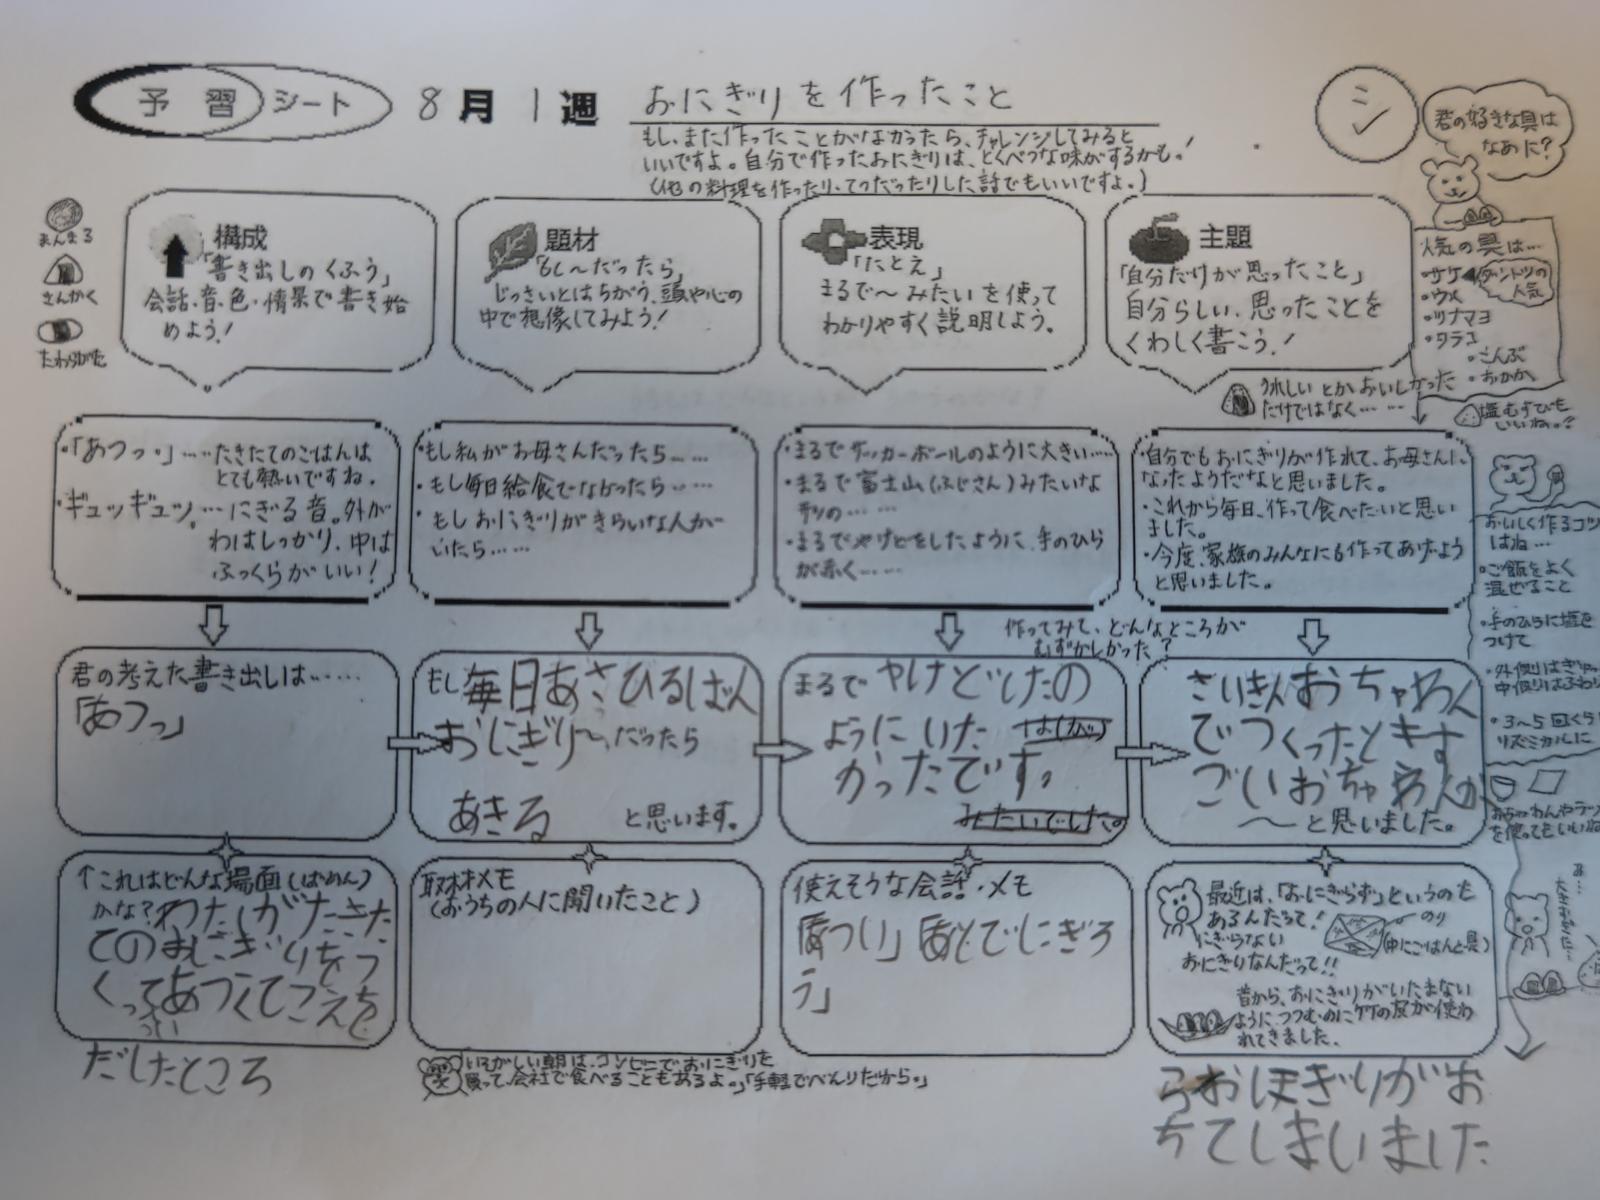 予習シート 8月1週 おにぎりを作ったこと
もし、まだ作ったことがなかったら、チャレンジしてみると
いいですよ。自分で作ったおにぎりは、とくべつな味がするかも!
(他の料理を作ったり、てつだったりした話でもいいですよ。)
シ
君の好きな具は
なあに?
まんまる
さんかく
たわらがた
構成
「書き出しのくふう」
会話、音、色、情景で書き始
めよう!
題材
「もし〜だったら」
じっさいとはちがう、頭や心の
中で想像してみよう!
表現
「たとえ」
まるで〜みたいを使って
わかりやすく説明しよう。
主題
「自分だけが思ったこと」
自分らしい、思ったことを
くわしく書こう!
人気の具は…
・サケ
ダントツの
人気
・ウメ
・ツナマヨ
・タラコ
・こんぶ
・おかか
うれしいとかおいしかった
だけではなく……
塩むすびも
いいね。?
・「あつっ。」……たきたてのごはんは
とても熱いですね。
・ギュッギュッ。…にぎる音。外が
わはしっかり、中は
ふっくらがいい!
・もし私がお母さんだったら……
・もし毎日給食でなかったら……
・もしおにぎりがきらいな人が
いたら……
・まるでサッカーボールのように大きい……
・まるで富士山(ふじさん)みたいな
形の……
・まるでやけどをしたように、手のひら
が赤く……
・自分でもおにぎりが作れて、お母さんに
なったようだなと思いました。
・これから毎日、作って食べたいと思い
ました。
・今度、家族のみんなにも作ってあげよう
と思いました。
おいしく作るコツ
はね…
・ご飯をよく
混ぜること
・手のひらに塩を
つけて
・外側はぎゅっ
中側はふわり
・3〜5回くらい
リズミカルに
作ってみて、どんなところが
むずかしかった?
君の考えた書き出しは……
「あつっ」
もし毎日あさひるばん
おにぎり〜だったら
あきる と思います。
まるでやけどしたの
ようにいた
かったです。
みたいでした。
さいきんおちゃわん
でつくったときす
ごいおちゃわんか
〜と思いました。
おちゃわんやラップ
を使ってもいいね
↑これはどんな場面(ばめん)
かな?わたしがたきた
てのおにぎりをつ
くってあつくてこえを
だしたところ
取材メモ
(おうちの人に聞いたこと)
使えそうな会話・メモ
「あつい」「あとでにぎろ
う」
最近は、「おにぎらず」というのも
あるんだって!
のり
にぎらない
(中にごはんと具)
おにぎりなんだって!!
昔から、おにぎりがいたまない
ようにつつむのに竹の皮が使わ
れてきました。
いそがしい朝は、コンビニでおにぎりを
買って、会社で食べることもあるよ。」「手軽でべんりだから。」
らおにぎりがお
ちてしまいました